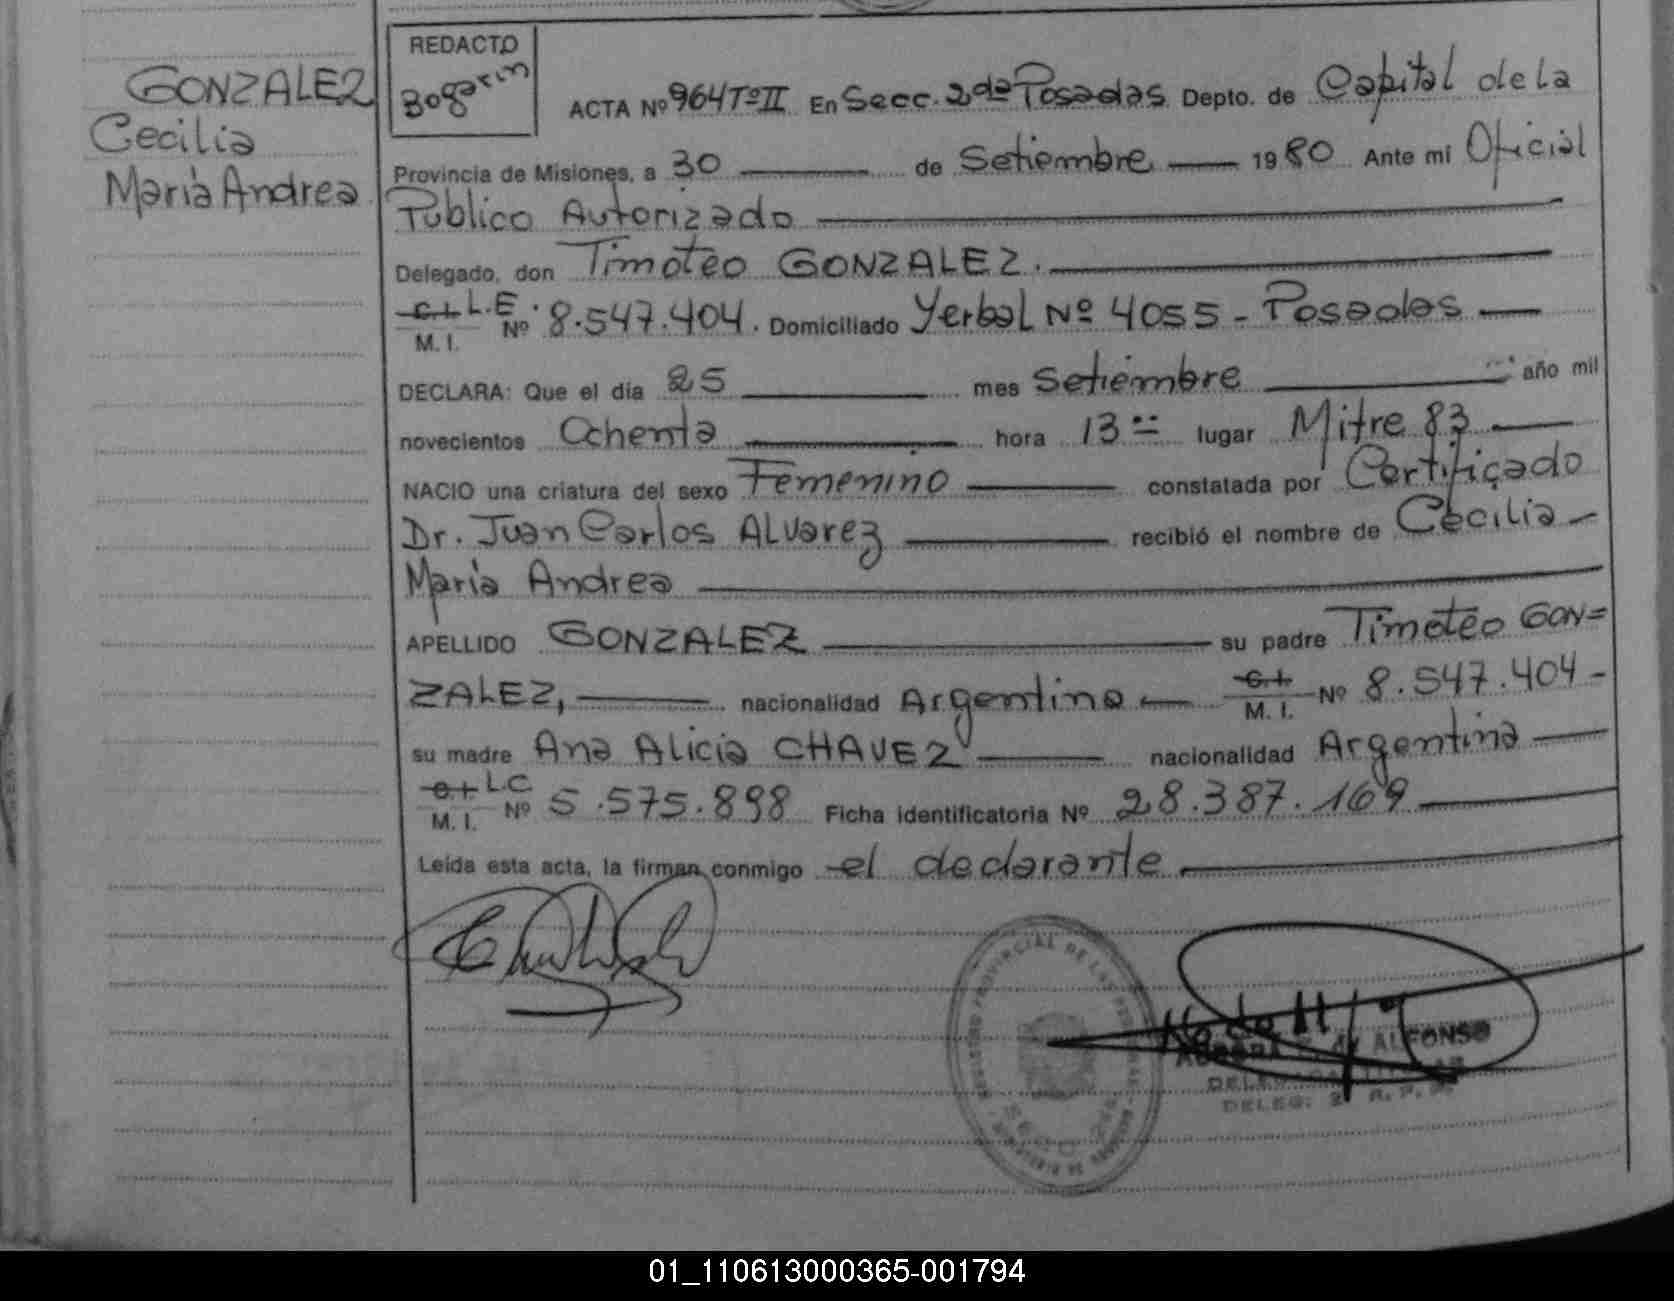 GONZALEZ
Cecilia
María Andrea
REDACTO
Bogarin
ACTA Nº 964 Tº II En Secc. 2da Posadas Depto. de Capital de la
Provincia de Misiones, a 30 de Setiembre 1980 Ante mi Oficial
Público Autorizado
Delegado, don Timoteo GONZALEZ.
C.I. L.E.
M. I. Nº 8.547.404. Domiciliado Yerbal Nº 4055 - Posadas
DECLARA: Que el día 25 mes Setiembre año mil
novecientos Ochenta hora 13 lugar Mitre 83
NACIO una criatura del sexo Femenino constatada por Certificado
Dr. Juan Carlos ALvarez recibió el nombre de Cecilia
María Andrea
APELLIDO GONZALEZ su padre Timoteo GON=
ZALEZ, nacionalidad Argentina C.I. M. I. Nº 8.547.404-
su madre Ana Alicia CHAVEZ nacionalidad Argentina
C.I. L.C.
M. I. Nº 5.575.898 Ficha identificatoria Nº 28.387.169
Leída esta acta, la firman conmigo el declarante
REGISTRO PROVINCIAL DE LAS PERSONAS
ALFONSO
DELEG. 2 R. P. P.
01_110613000365-001794